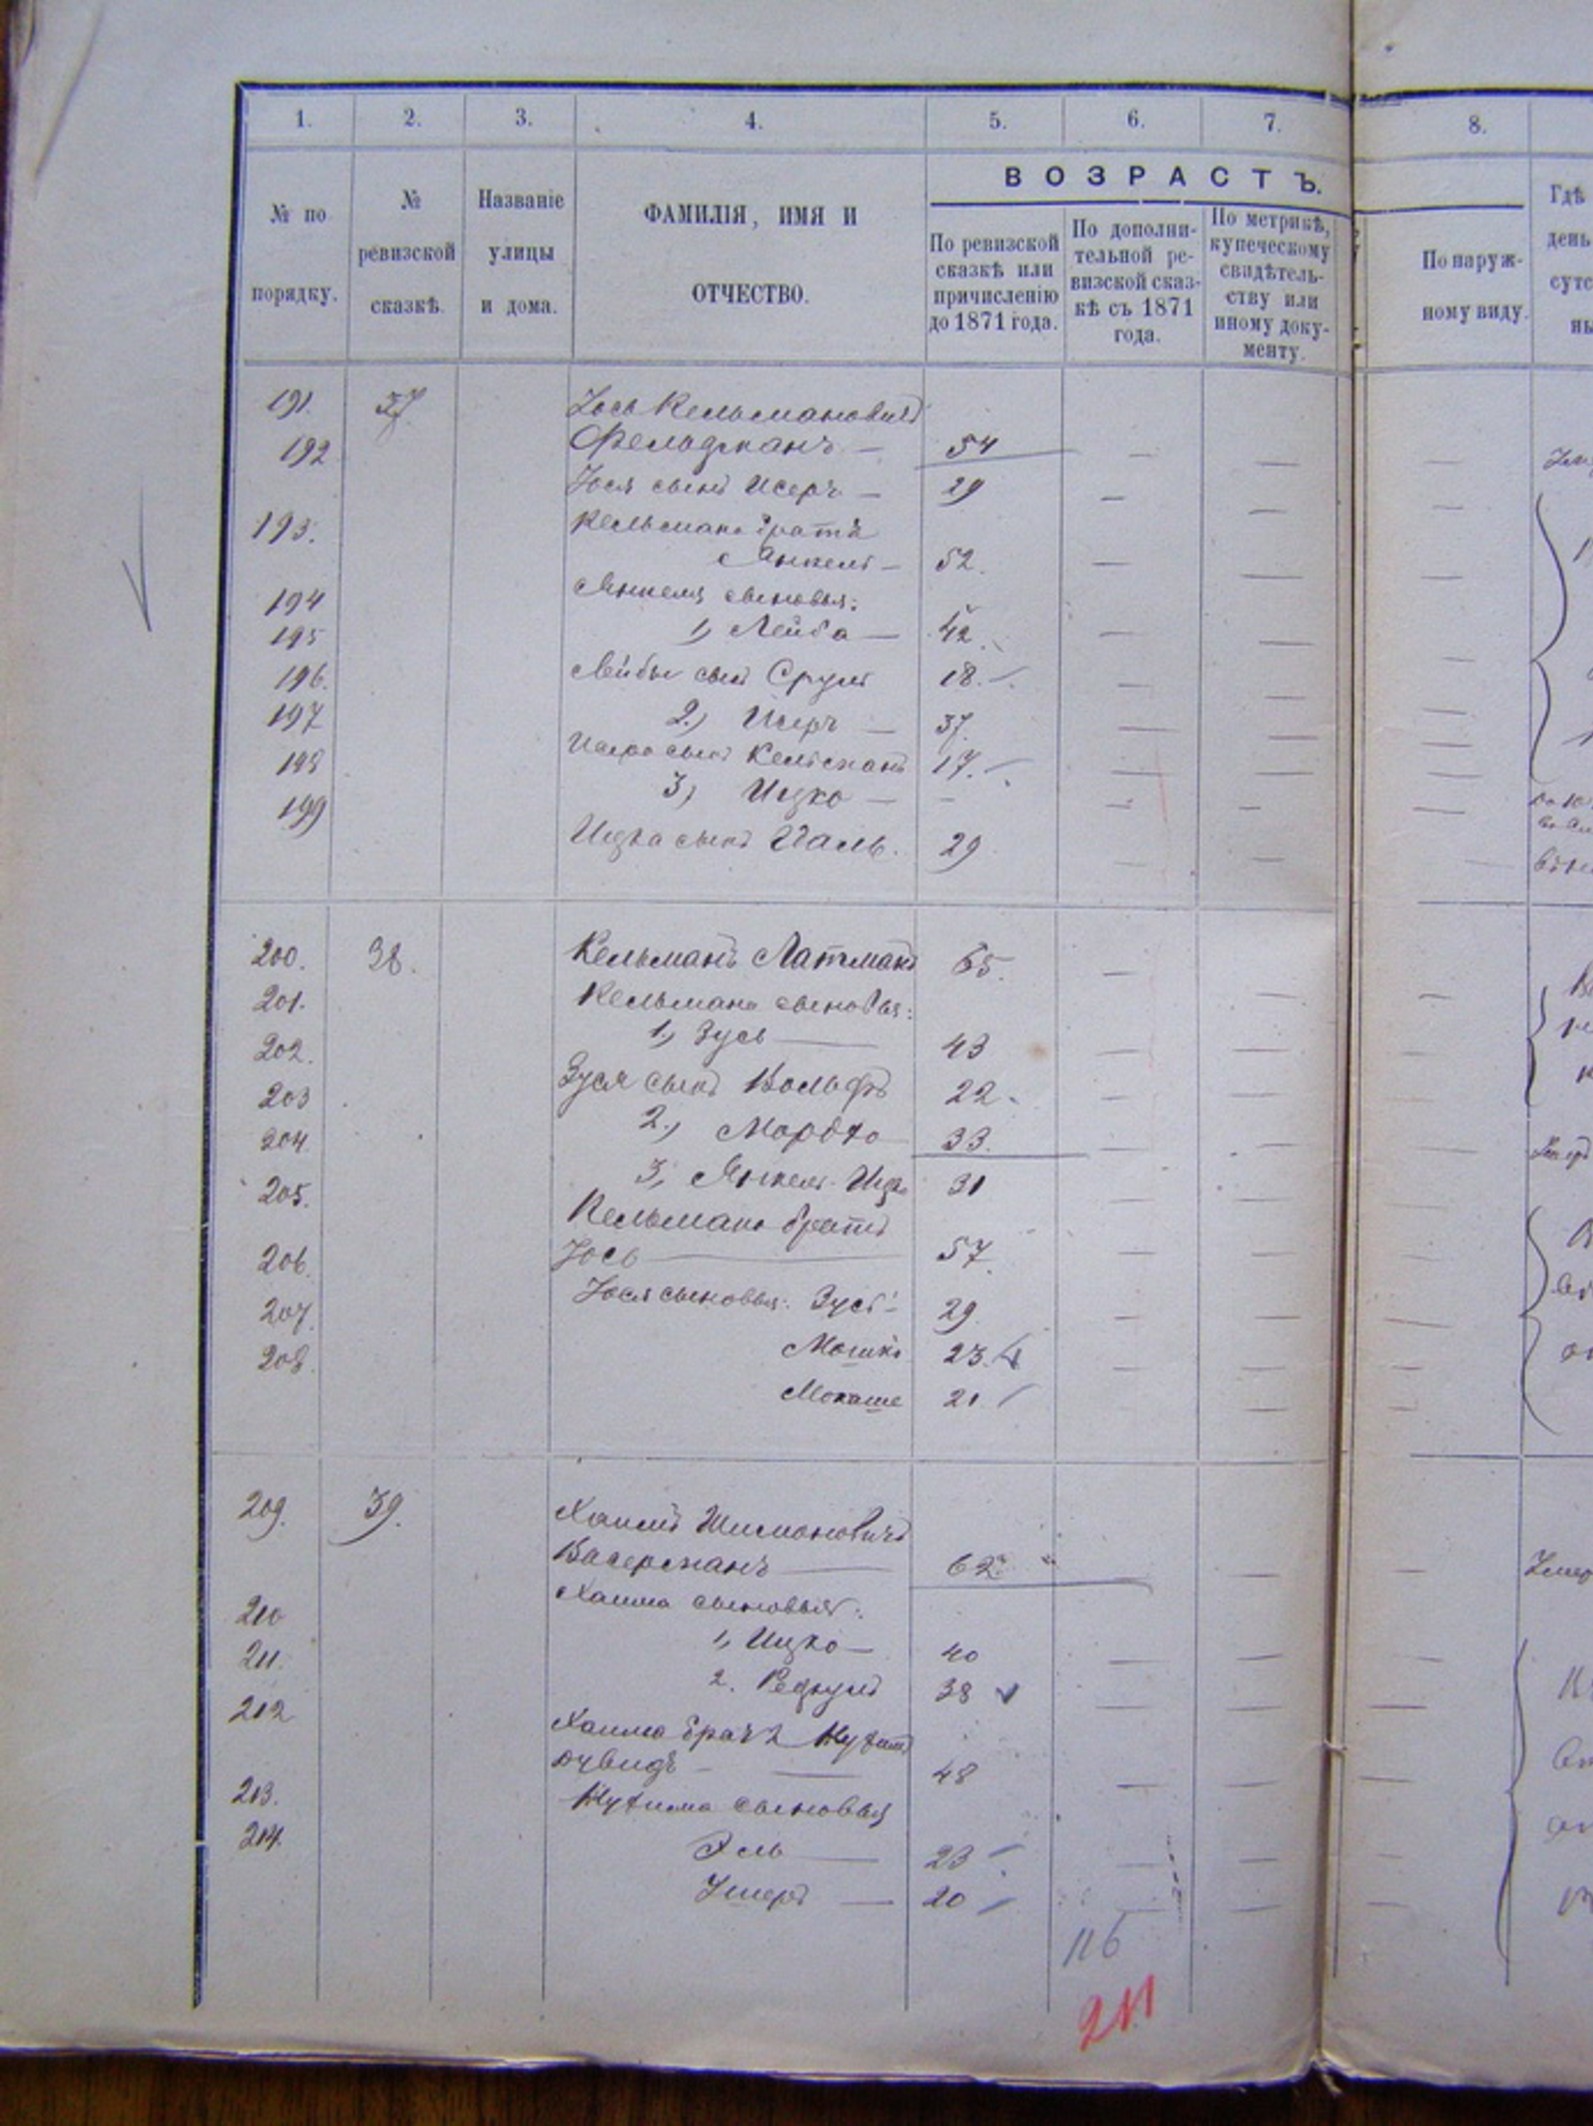 1. 2. 3. 4. 5. 6. 7. 8.
№ по порядку.
№ ревизской сказкѣ.
Названіе улицы и дома.
ФАМИЛІЯ, ИМЯ И ОТЧЕСТВО.
ВОЗРАСТЪ.
По ревизской сказкѣ или причисленію до 1871 года.
По дополнительной ревизской сказкѣ съ 1871 года.
По метрикѣ, купеческому свидѣтельству или иному документу.
По наружному виду.
Гдѣ
день
сутс
191. 37. Іось Кельмановичъ
192 Фельдманъ — 54
Іося сынъ Исеръ — 29
193. Кельмана братъ
Янкель — 52.
194 Янкеля сыновья:
195 1, Лейба — 42.
196. Лейбы сынъ Сруль 18.
197 2., Исеръ — 37.
198 Исера сынъ Кельманъ 17.
3, Ицко — –
199 Ицка сынъ 29
200. 38. Кельманъ Латманъ 65.
201. Кельмана сыновья:
202. 1., Зусь — 43
203 Зуся сынъ Вольфъ 22
204. 2., Мордко 33.
205. 3, Янкель-Ицко 31
Кельмана братъ
206. Іось — 57.
207. Іося сыновья: Зусь 29
208. Мошко 23.
21
209. 39. Хаимъ Шимоновичъ
Васерманъ — 62
210 Хаима сыновья:
211. 1, Ицко — 40
212 2. 38
Хаима братъ
48
213. сыновья
214. Эль — 23
Ушеръ — 20
116
211